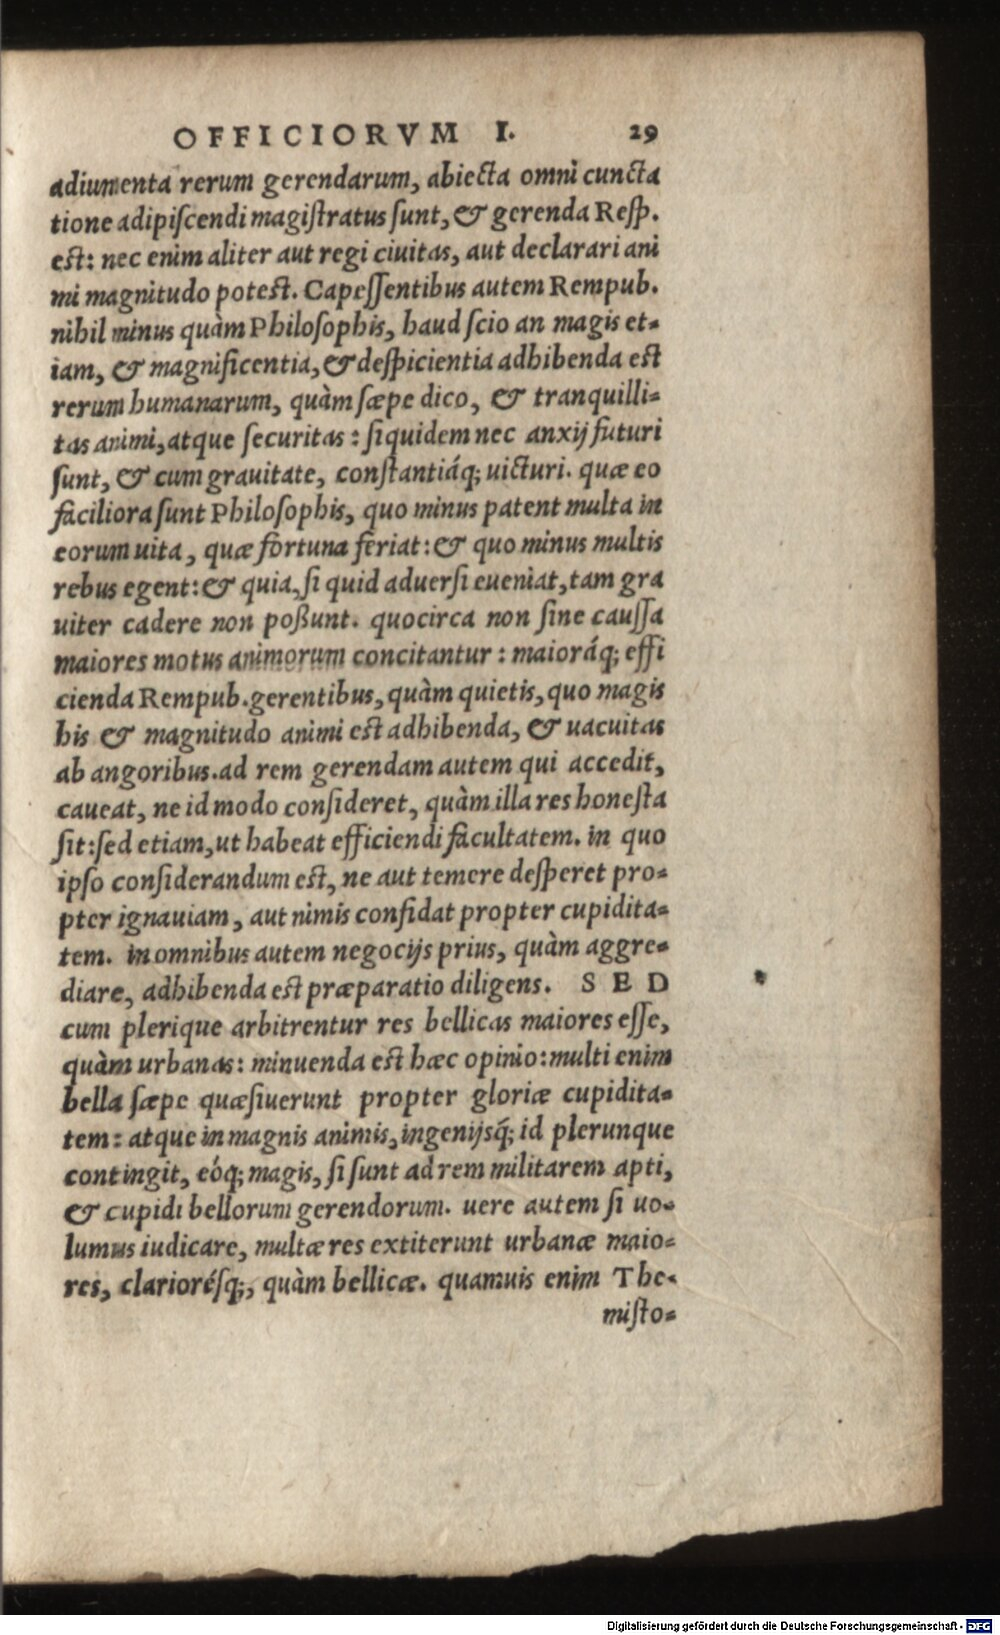 OFFICIORVM I. 29
adiumenta rerum gerendarum, abiecta omni cuncta
tione adipiscendi magistratus sunt, & gerenda Resp.
est: nec enim aliter aut regi ciuitas, aut declarari ani
mi magnitudo potest. Capessentibus autem Rempub.
nihil minus quàm Philosophis, haud scio an magis et-
iam, & magnificentia, & despicientia adhibenda est
rerum humanarum, quàm sæpe dico, & tranquilli-
tas animi, atque securitas: siquidem nec anxij futuri
sunt, & cum grauitate, constantiáq; uicturi. quæ eo
faciliora sunt Philosophis, quo minus patent multa in
eorum uita, quæ fortuna feriat: & quo minus multis
rebus egent: & quia, si quid aduersi eueniat, tam gra
uiter cadere non poßunt. quocirca non sine caussa
maiores motus animorum concitantur: maioráq; effi
cienda Rempub. gerentibus, quàm quietis, quo magis
his & magnitudo animi est adhibenda, & uacuitas
ab angoribus. ad rem gerendam autem qui accedit,
caueat, ne id modo consideret, quàm illa res honesta
sit: sed etiam, ut habeat efficiendi facultatem. in quo
ipso considerandum est, ne aut temere desperet pro-
pter ignauiam, aut nimis confidat propter cupidita-
tem. in omnibus autem negocijs prius, quàm aggre-
diare, adhibenda est præparatio diligens. SED
cum plerique arbitrentur res bellicas maiores esse,
quàm urbanas: minuenda est hæc opinio: multi enim
bella sæpe quæsiuerunt propter gloriæ cupidita-
tem: atque in magnis animis, ingenijsq́; id plerunque
contingit, eóq; magis, si sunt ad rem militarem apti,
& cupidi bellorum gerendorum. uere autem si uo-
lumus iudicare, multæ res extiterunt urbanæ maio-
res, clariorésq;, quàm bellicæ. quamuis enim The-
misto-
Digitalisierung gefördert durch die Deutsche Forschungsgemeinschaft - DFG